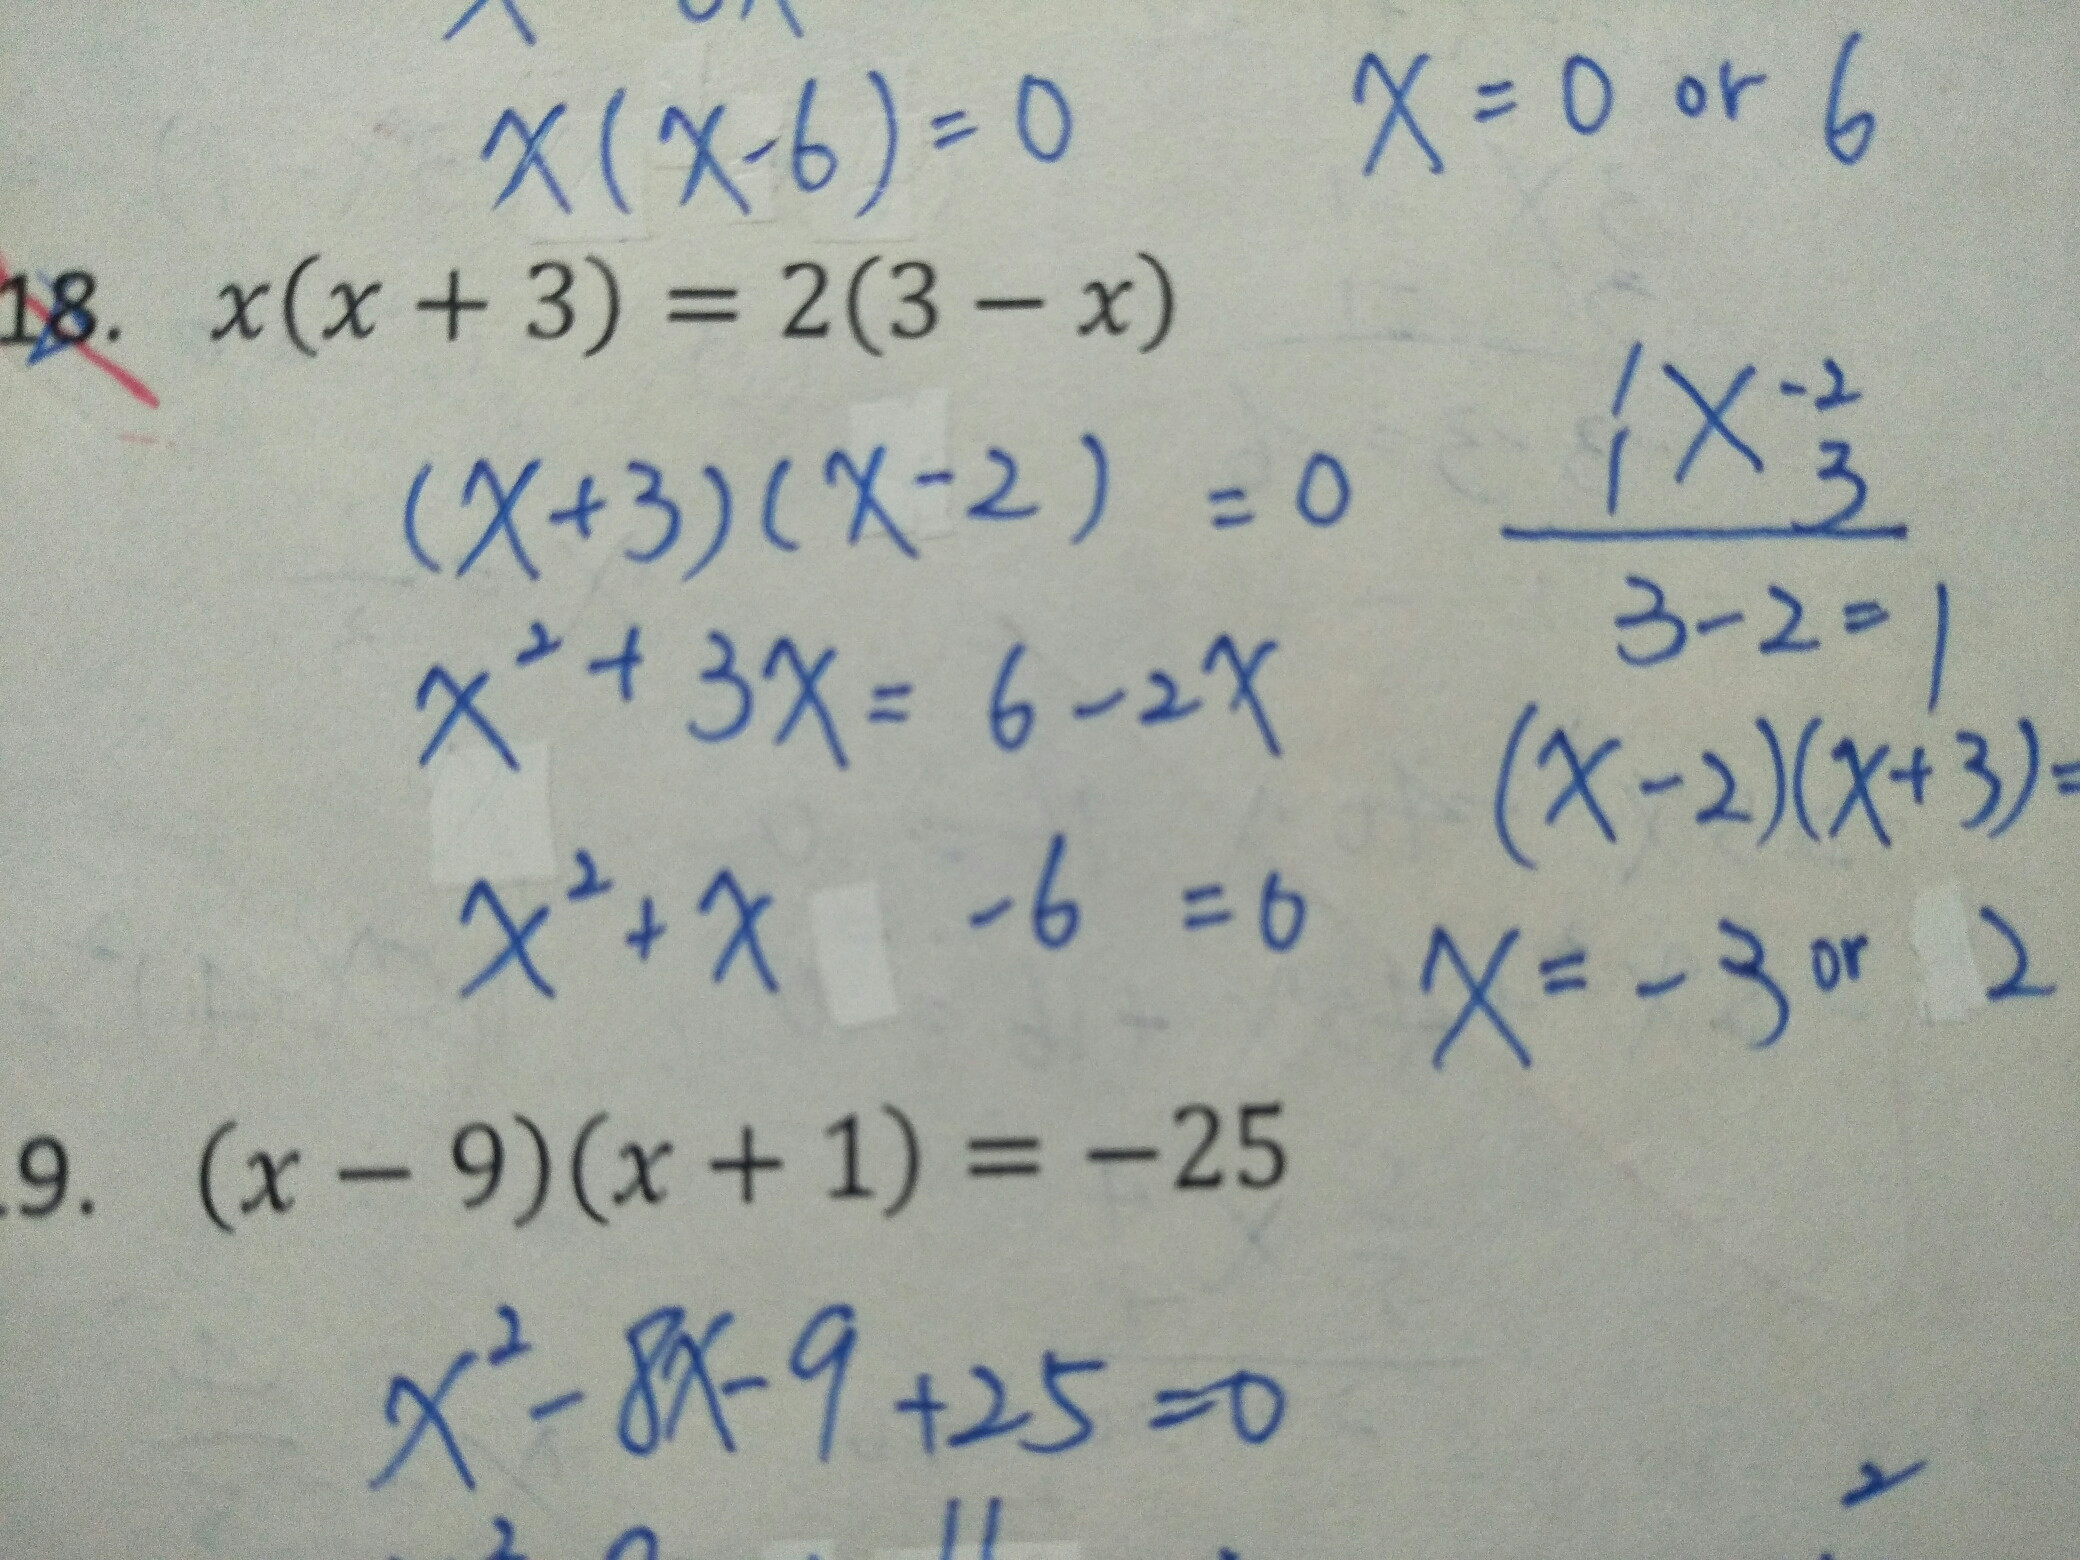 x(x-6)=0 x=0 or 6
18. x(x + 3) = 2(3 − x)
1 x -2
1 3
(x+3)(x-2) =0
3-2=1
x²+3x=6-2x
(x-2)(x+3)=
x²+x -6 =0
x=-3 or 2
9. (x − 9)(x + 1) = −25
x²-8x-9+25=0